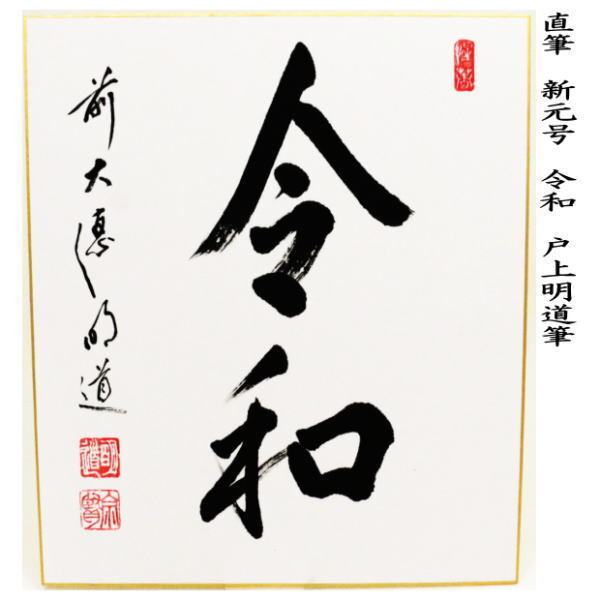 直筆　新元号　令和　戸上明道筆
令和
前大徳明道
明道